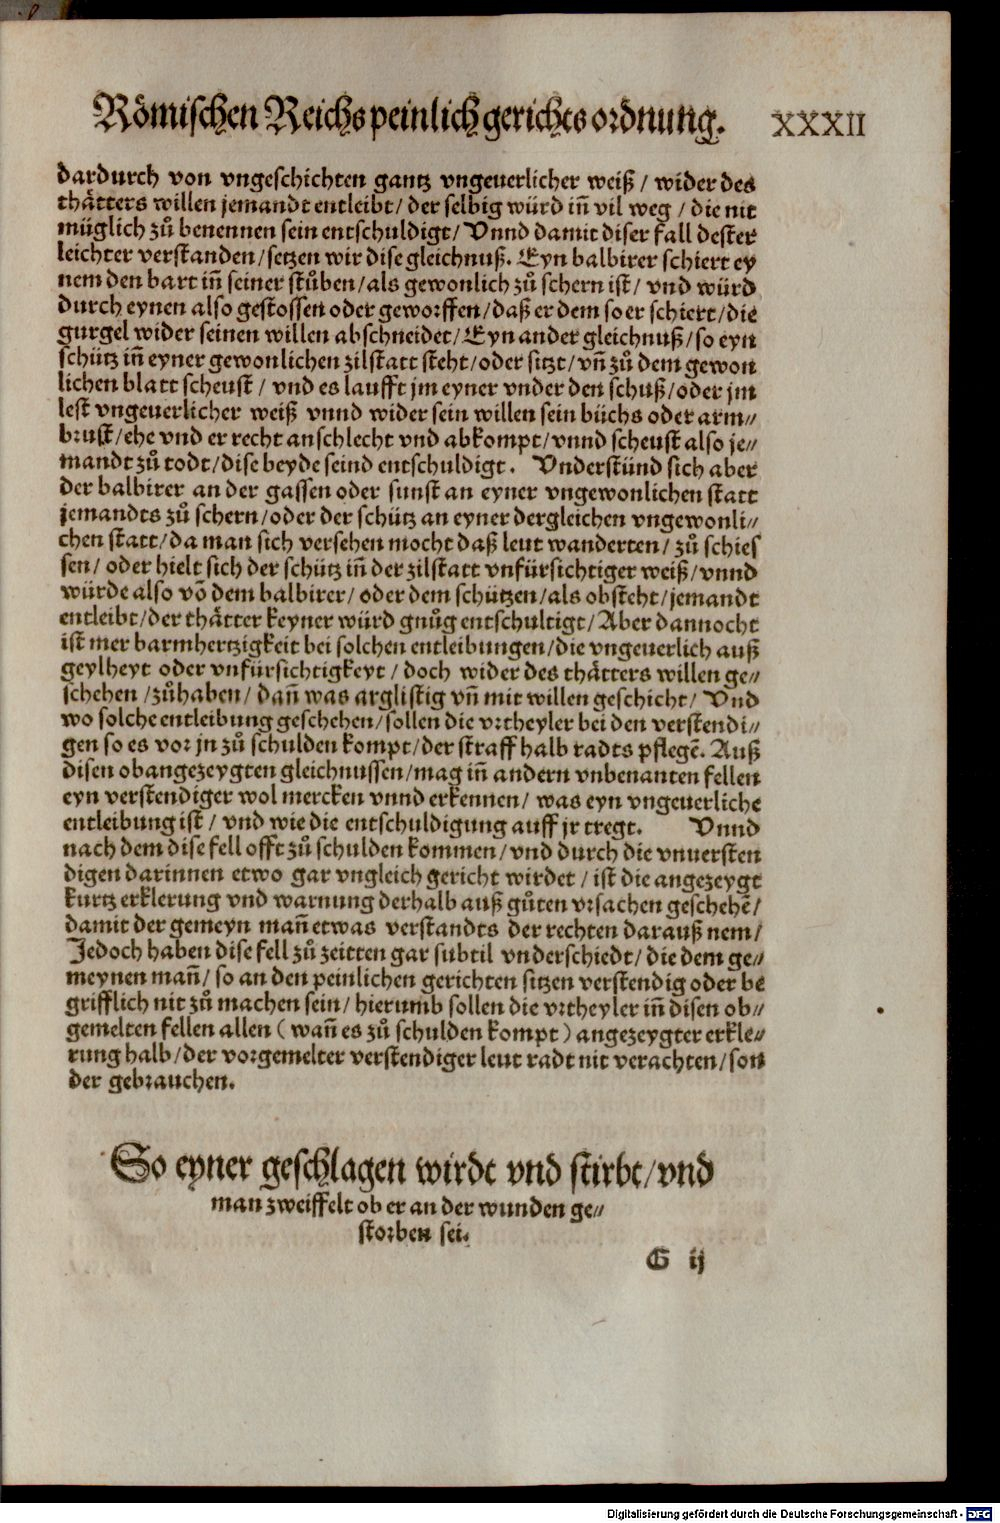 Römischen Reichs peinlich gerichts ordnung. XXXII
dardurch von vngeschichten gantz vngeuerlicher weiß / wider des
thätters willen jemandt entleibt / der selbig würd iñ vil weg / die nit
müglich zů benennen sein entschuldigt / Vnnd damit diser fall dester
leichter verstanden / setzen wir dise gleichnuß. Eyn balbirer schiert ey
nem den bart iñ seiner stůben / als gewonlich zů schern ist / vnd würd
durch eynen also gestossen oder geworffen / daß er dem so er schiert / die
gurgel wider seinen willen abschneidet / Eyn ander gleichnuß / so eyn
schütz iñ eyner gewonlichen zilstatt steht / oder sitzt / vñ zů dem gewon
lichen blatt scheust / vnd es laufft jm eyner vnder den schuß / oder jm
lest vngeuerlicher weiß vnnd wider sein willen sein büchs oder arm⸗
brust / ehe vnd er recht anschlecht vnd abkompt / vnnd scheust also je⸗
mandt zů todt / dise beyde seind entschuldigt. Vnderstünd sich aber
der balbirer an der gassen oder sunst an eyner vngewonlichen statt
jemandts zů schern / oder der schütz an eyner dergleichen vngewonli⸗
chen statt / da man sich versehen mocht daß leut wanderten / zů schies
sen / oder hielt sich der schütz iñ der zilstatt vnfürsichtiger weiß / vnnd
würde also võ dem balbirer / oder dem schützen / als obsteht / jemandt
entleibt / der thätter keyner würd gnůg entschultigt / Aber dannocht
ist mer barmhertzigkeit bei solchen entleibungen / die vngeuerlich auß
geylheyt oder vnfürsichtigkeyt / doch wider des thätters willen ge⸗
schehen / zůhaben / dañ was arglistig vñ mit willen geschicht / Vnd
wo solche entleibung geschehen / sollen die vrtheyler bei den verstendi⸗
gen so es vor jn zů schulden kompt / der straff halb radts pflegẽ. Auß
disen obangezeygten gleichnussen / mag iñ andern vnbenanten fellen
eyn verstendiger wol mercken vnnd erkennen / was eyn vngeuerliche
entleibung ist / vnd wie die entschuldigung auff jr tregt. Vnnd
nach dem dise fell offt zů schulden kommen / vnd durch die vnuersten
digen darinnen etwo gar vngleich gericht wirdet / ist die angezeygt
kurtz erklerung vnd warnung derhalb auß gůten vrsachen geschehẽ /
damit der gemeyn mañ etwas verstandts der rechten darauß nem /
Jedoch haben dise fell zů zeitten gar subtil vnderschiedt / die dem ge⸗
meynen mañ / so an den peinlichen gerichten sitzen verstendig oder be
grifflich nit zů machen sein / hierumb sollen die vrtheyler iñ disen ob⸗
gemelten fellen allen ( wañ es zů schulden kompt ) angezeygter erkle⸗
rung halb / der vorgemelter verstendiger leut radt nit verachten / son
der gebrauchen.
So eyner geschlagen wirdt vnd stirbt / vnd
man zweiffelt ob er an der wunden ge⸗
storben sei.
G ij
Digitalisierung gefördert durch die Deutsche Forschungsgemeinschaft - DFG